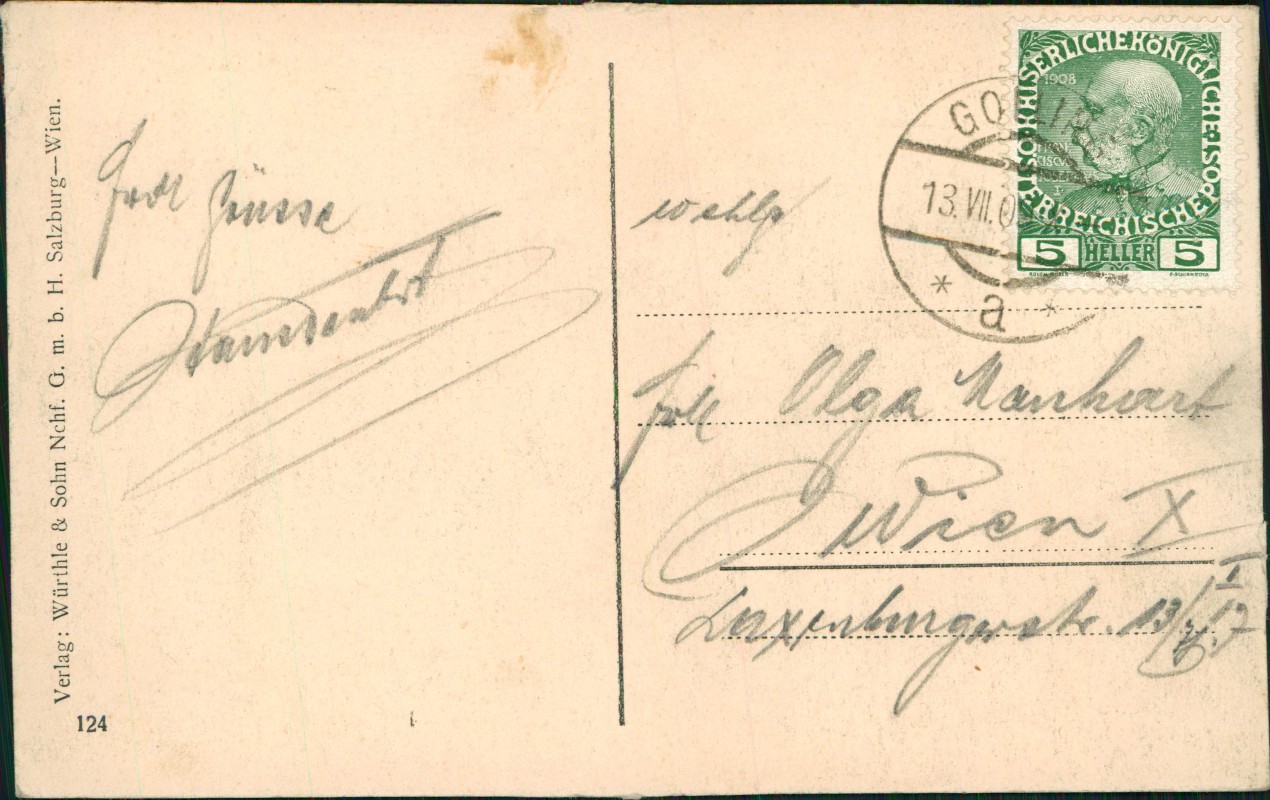 Verlag: Würthle & Sohn Nchf. G. m. b. H. Salzburg—Wien.
124
Grüsse
KAISERLICHE KÖNIGLICHE ÖSTERREICHISCHE POST
1908
5 HELLER 5
GOLLING
13. VII. 0
* a *
wohlg
Frl Olga Manhart
Wien X
Laxenburgerstr. 13/ 17